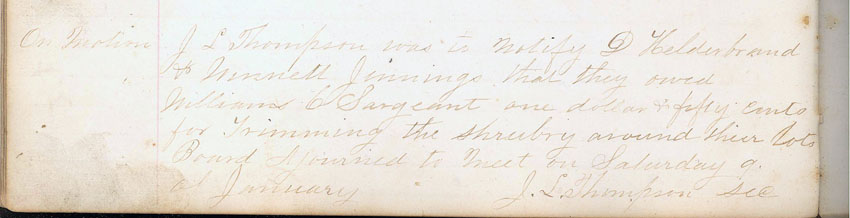 On Motion J L Thompson was to Notify D Helderbrand
& Vennett Jinnings that they owed
Williams C Sargeant one dollar & fifty cents
for Trimming the shrubry around their Lots
Board Ajourned to meet on Saturday 9.
of January J. L. Thompson Sec